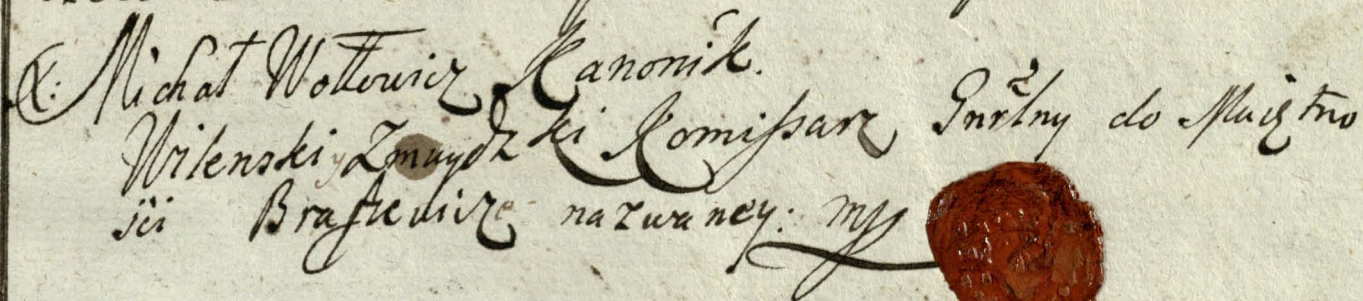 X: Michał Wołłowicz Kanonik.
Wilenski y Zmuydzki Komissarz Gnrlny do Maiętno
sci Brastewicze nazwaney: mp